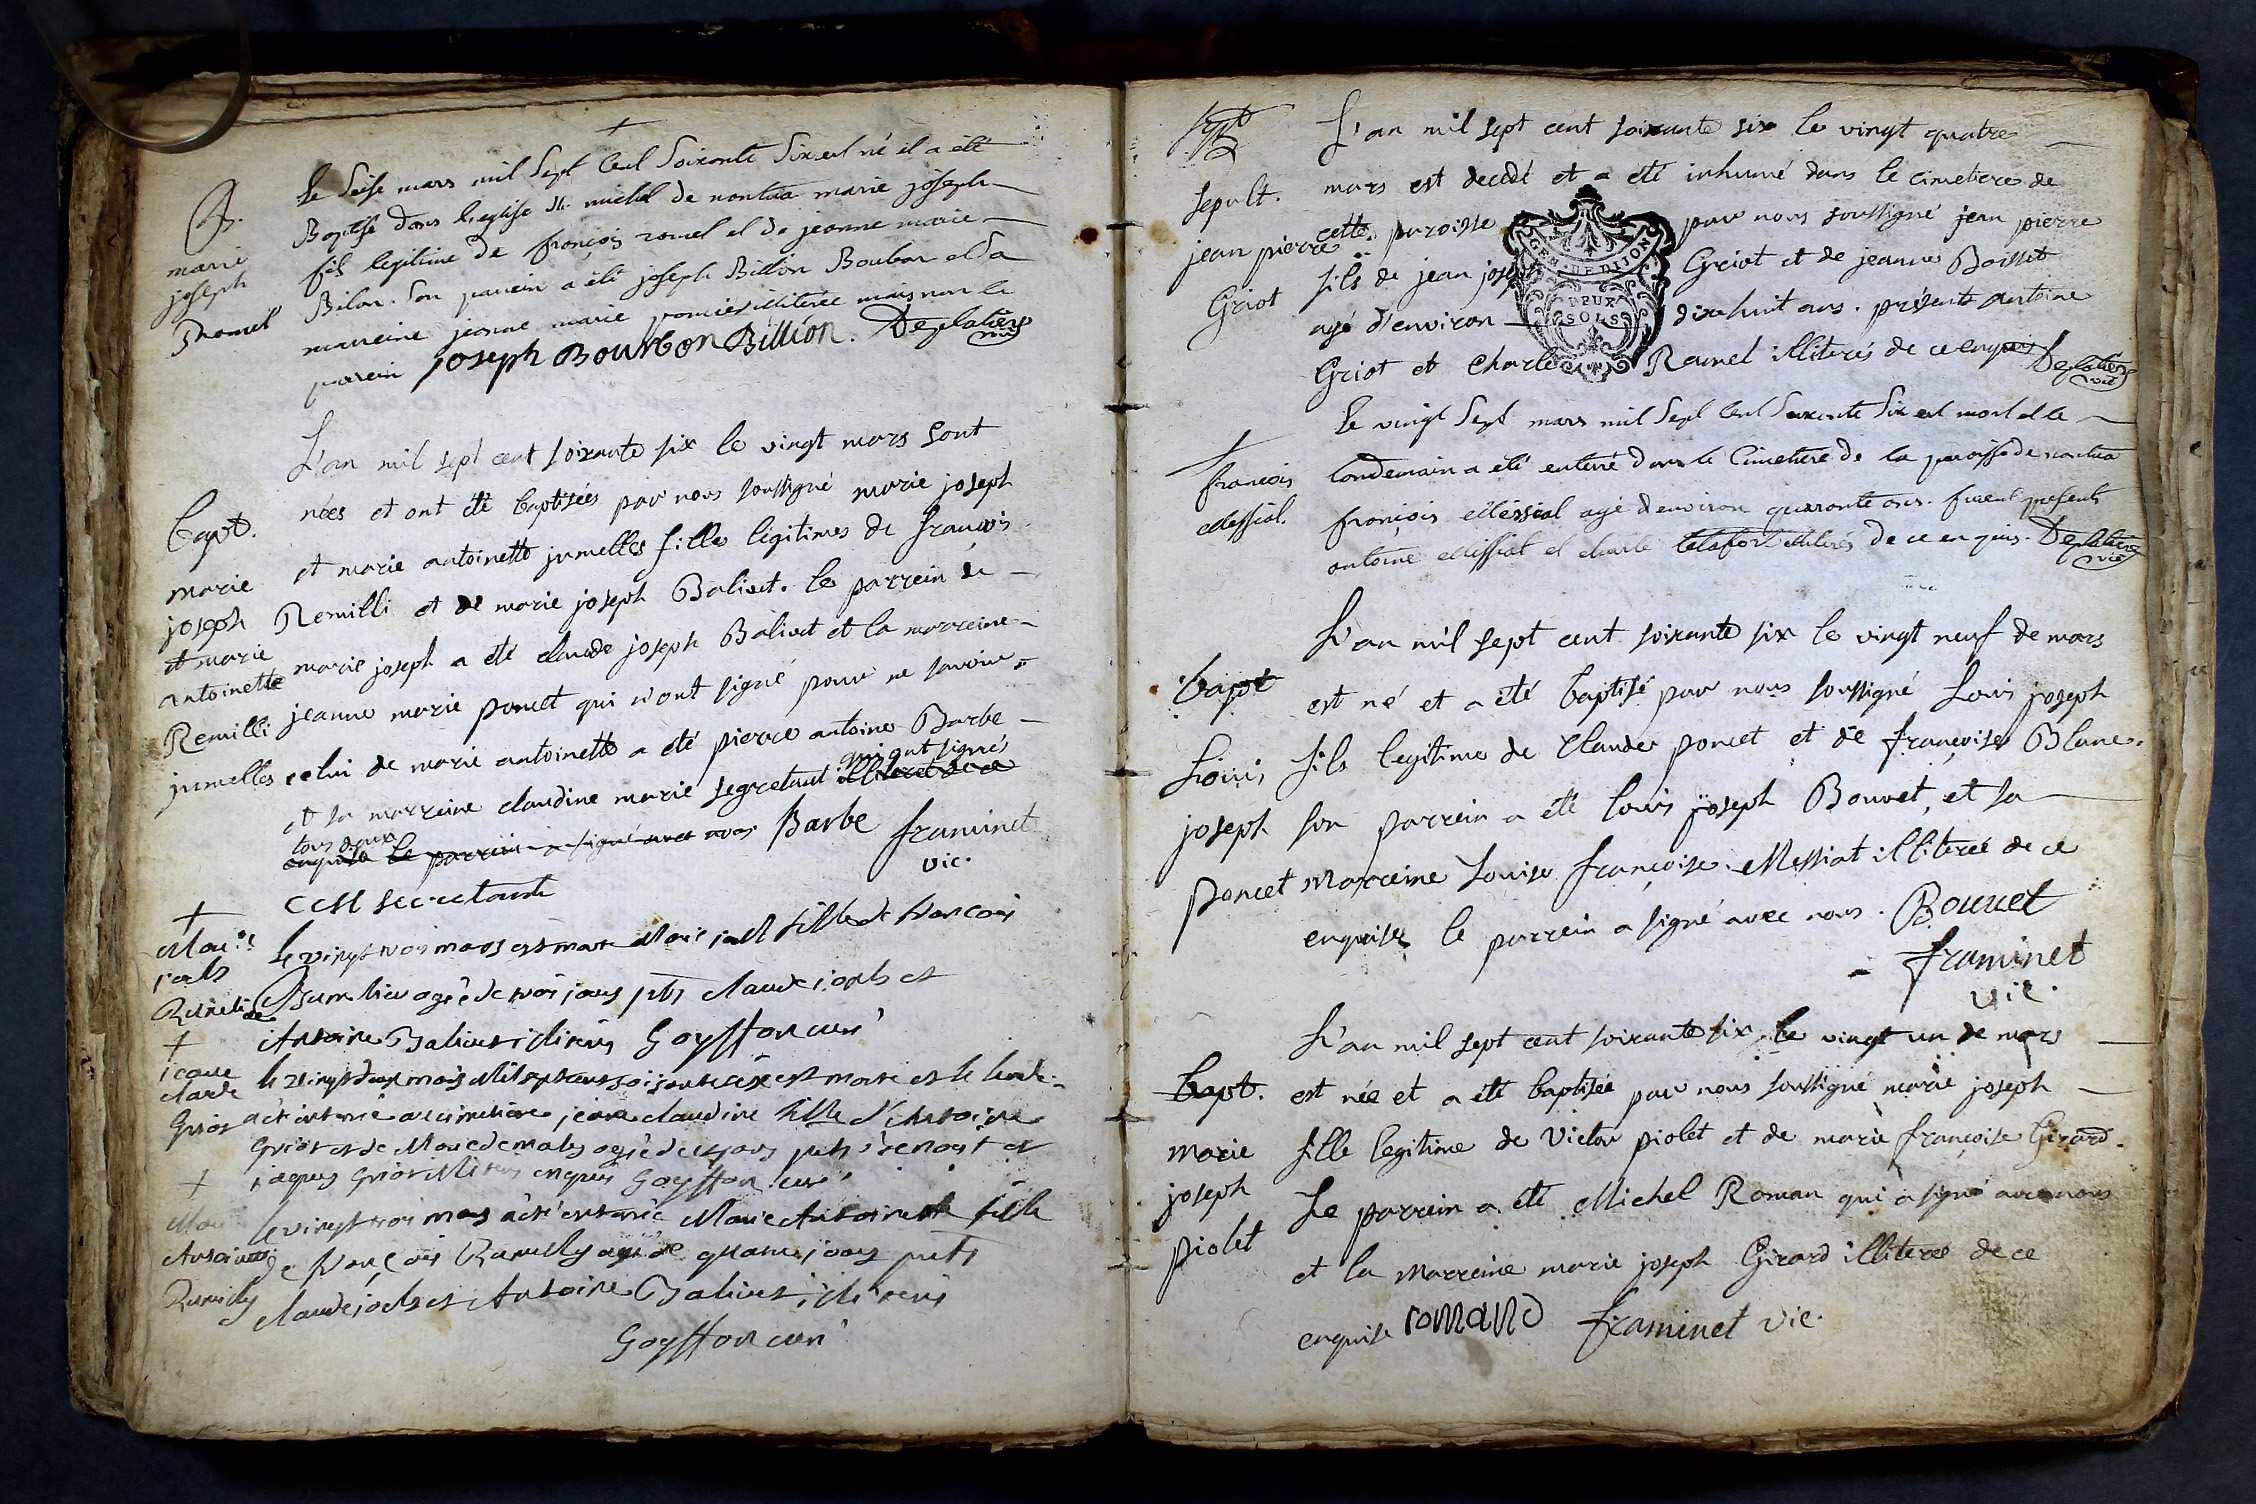 Le seise mars mil sept cent soixante six est né il a été
Baptisé dans l'eglise st. michel de nantua marie joseph
fils legitime de françois ramel et de jeanne marie
Bilon. Son parrein a été joseph Billion Bourbon et la
marreine jeanne marie illiterée mais non le
parrein joseph Bourbon Billion. Deplatiere
vic
B.
marie
joseph
ramel
L'an mil sept cent soixante six le vingt mars sont
nées et ont été baptisées par nous soussigné marie joseph
et marie antoinette jumelles filles légitimes de francois
Remilli et de marie joseph Balivet. le parrein de
marie joseph a été claude joseph Balivet et la marreine
jeanne marie poncet qui n'ont signé pour ne savoir.
celui de marie antoinette a été pierre antoine Barbe
et la marreine claudine marie segretant illiteret de ce
qui ont signés
tous deux
enquise le parrein a signé avec nous Barbe framinet
vic.
CCM secretant
bapt.
marie
joseph
et marie
antoinette
Remilli
jumelles
le vingt trois mars est morte Marie jos fille de francois
Rumilier agée de trois jours pnts claude josph et
Antoine Balivet illiterés Goyffon curé
+
Marie
josh
Rumili
le vingt deux mars Mil sept cent soisente six est morte et le lende-
a été enterrée au cimetiere jeane claudine fille d'Antoine
Griot et de Marie demales agée de jours pnts benoit et
jaques Griot illiterés enquis Goyffon curé
+
jeane
claude
Griot
le vingt trois mars a été enterrée Marie Antoinette fille
de françois Rumilly agée de quatre jours pnts
claude josh et Antoine Balivet illiterés
Goyffon curé
+
Marie
Antoinette
Rumilly
L'an mil sept cent soixante six le vingt quatre
mars est decedé et a été inhumé dans le cimetiere de
cette paroisse par nous soussigné jean pierre
fils de jean joseph Griot et de jeanne Boisset
agé d'environ dix huit ans. présents Antoine
Griot et Charle Ramel illiterés de ce enquis Deplatiere
vic
GEN. DE DIJON
DEUX
SOLS
sepult.
jean pierre
Griot
Le vingt sept mars mil sept cent soixante six est mort et le
landemain a été enterré dans le Cimetiere de la paroisse de nantua
françois Messial agé d'environ quarante ans. furent presents
antoine Messiat et charle illiterés de ce enquis. Deplatiere
vic
+
francois
Messial.
L'an mil sept cent soixante six le vingt neuf de mars
est né et a été baptisé par nous soussigné Louis joseph
fils legitime de Claude poncet et de françoise Blanc.
son parrein a été louis joseph Bouvet, et sa
marreine Louise françoise Messiat illiterée de ce
enquise, le parrein a signé avec nous. Bouvet
framinet
vic.
bapt
Louis
joseph
poncet
L'an mil sept cent soixante six, le vingt un de mars
est née et a été baptisée par nous soussigné marie joseph
fille legitime de Victor piolet et de marie françoise Girard.
Le parrein a été Michel Roman qui a signé avec nous
et la marreine marie joseph Girard illiterée de ce
enquise romand framinet vic.
bapt.
marie
joseph
piolet